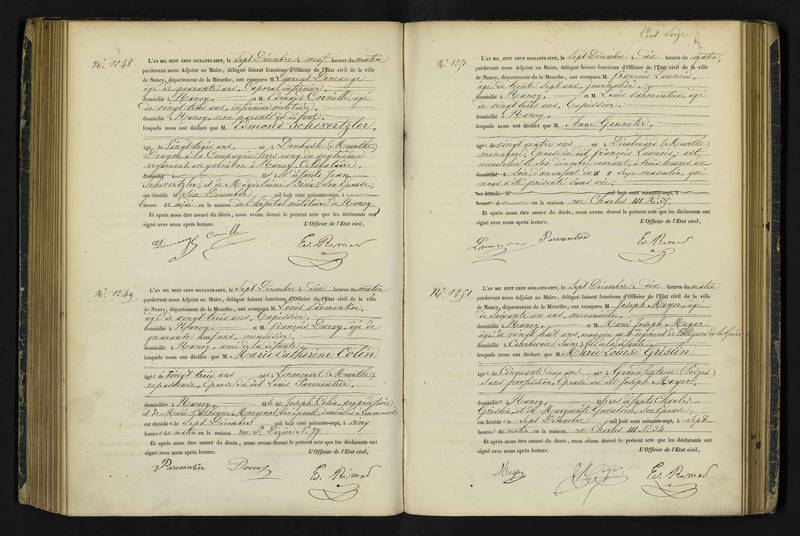 No. 1248
L'AN MIL HUIT CENT SOIXANTE-SEPT, le Sept Décembre à neuf heures du matin
pardevant nous Adjoint au Maire, délégué faisant fonctions d'Officier de l'Etat civil de la ville
de Nancy, département de la Meurthe, ont comparu M. Laurent Demange
âgé de quarante ans, Caporal infirmier,
domicilié à Nancy, et M. Edouard Cornille, âgé
de vingt trois ans, infirmier militaire,
domicilié à Nancy, non parents du défunt,
lesquels nous ont déclaré que M. Edmond Schevertzler,
âgé de Vingt six ans né à Dombasle (Meurthe)
Dragon à la Compagnie hors rang du quatrième
régiment en garnison à Nancy, Célibataire,
domicilié à défunts Jean
Schevertzler, et de Magdelaine son Epouse,
est décédé le Six Décembre mil huit cent soixante-sept, à
heure de midi en la maison de l'hôpital militaire de Nancy
Et après nous être assuré du décès, nous avons dressé le présent acte que les déclarants ont
signé avec nous après lecture. L'Officier de l'Etat civil,
No. 1249
L'AN MIL HUIT CENT SOIXANTE-SEPT, le Sept Décembre à dix heures du matin
pardevant nous Adjoint au Maire, délégué faisant fonctions d'Officier de l'Etat civil de la ville
de Nancy, département de la Meurthe, ont comparu M. Louis Parmentier,
âgé de vingt trois ans, Tapissier,
domicilié à Nancy, et M. François
quarante huit ans, menuisier,
domicilié à Nancy, ami de la défunte,
lesquels nous ont déclaré que M. Marie Catherine Colin
âgée de Vingt trois ans née à Lenoncourt (Meurthe)
repasseuse, Epouse du dit Louis Parmentier,
domiciliée à Nancy, fille de Joseph Colin, propriétaire
et de Marie Catherine son épouse, domiciliés à Lenoncourt
est décédée le Sept Décembre mil huit cent soixante-sept, à cinq
heures du matin en la maison rue St. Dizier No. 77
Et après nous être assuré du décès, nous avons dressé le présent acte que les déclarants ont
signé avec nous après lecture. L'Officier de l'Etat civil,
Parmentier
Cent Seize
No. 1250
L'AN MIL HUIT CENT SOIXANTE-SEPT, le Sept Décembre à dix heures du matin,
pardevant nous Adjoint au Maire, délégué faisant fonctions d'Officier de l'Etat civil de la ville
de Nancy, département de la Meurthe, ont comparu M. François Launois,
âgé de trente sept ans, journalier,
domicilié à Nancy, et M. Louis Parmentier, âgé
de vingt trois ans, Tapissier,
domicilié à Nancy,
lesquels nous ont déclaré que M. Anne
âgée de vingt quatre ans née à Dieulouard (Meurthe)
ménagère, Epouse du dit François Launois, est
accouchée le six décembre courant à trois heures du
domicilié à Soir, d'un enfant du sexe masculin, qui
nous a été présenté sans vie,
est décédé le mil huit cent soixante-sept, à
heure d en la maison rue Charles III No. 35.
Et après nous être assuré du décès, nous avons dressé le présent acte que les déclarants ont
signé avec nous après lecture. L'Officier de l'Etat civil,
Parmentier
No. 1251
L'AN MIL HUIT CENT SOIXANTE-SEPT, le Sept Décembre à dix heures du matin
pardevant nous Adjoint au Maire, délégué faisant fonctions d'Officier de l'Etat civil de la ville
de Nancy, département de la Meurthe, ont comparu M. Joseph Mayer, âgé
de Soixante un ans, mécanicien,
domicilié à Nancy, et M. Marie Joseph Mayer
âgé de vingt huit ans,
domicilié à fils de la défunte,
lesquels nous ont déclaré que M. Marie Louise Grislin
âgée de Cinquante cinq ans née à (Vosges)
Sans profession, Epouse du dit Joseph Mayer,
domiciliée à Nancy, fille de défunts Charles
Grislin, et de Marguerite son Epouse,
est décédée le Sept Décembre mil huit cent soixante-sept, à sept
heures du matin en la maison rue Charles III No. 34
Et après nous être assuré du décès, nous avons dressé le présent acte que les déclarants ont
signé avec nous après lecture. L'Officier de l'Etat civil,